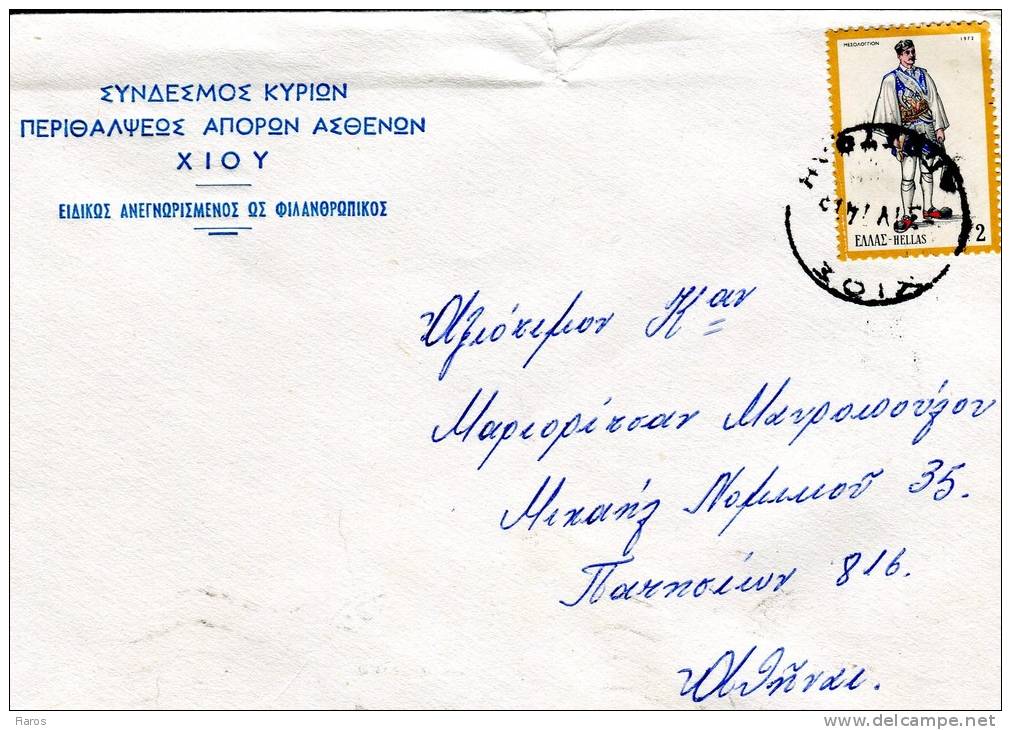 ΣΥΝΔΕΣΜΟΣ ΚΥΡΙΩΝ
ΠΕΡΙΘΑΛΨΕΩΣ ΑΠΟΡΩΝ ΑΣΘΕΝΩΝ
ΧΙΟΥ
ΕΙΔΙΚΩΣ ΑΝΕΓΝΩΡΙΣΜΕΝΟΣ ΩΣ ΦΙΛΑΝΘΡΩΠΙΚΟΣ
ΜΕΣΟΛΟΓΓΙΟΝ 1972
ΕΛΛΑΣ-HELLAS 2
Ἀξιότιμον Καν
Μαριορίτσαν Μαυροπούλου
Μιχαήλ Νομικοῦ 35.
Πατησίων 816.
Ἀθῆναι.
Raros
www.delcampe.net